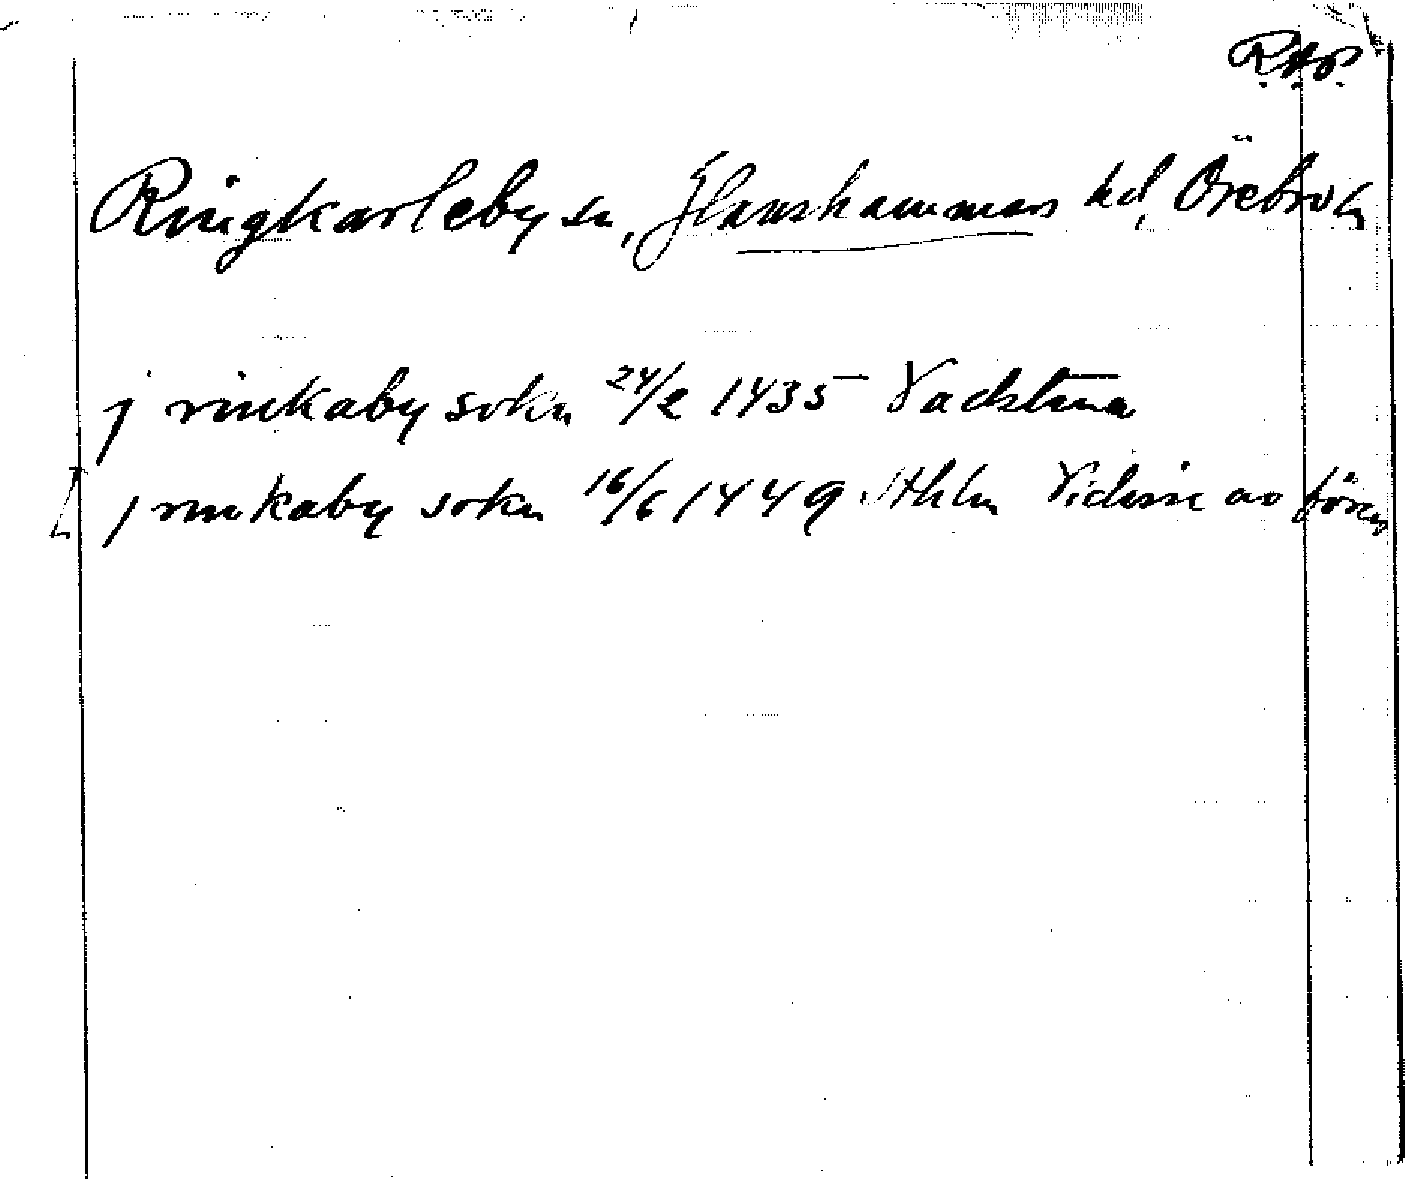 R.A.P.
Ringkarleby sn, Glanshammars hd, Örebro ln
j rinkaby sokn 24/2 1435 Vadstena
[ j rinkaby sokn 16/6 1449 Sthlm Vidisse av fören